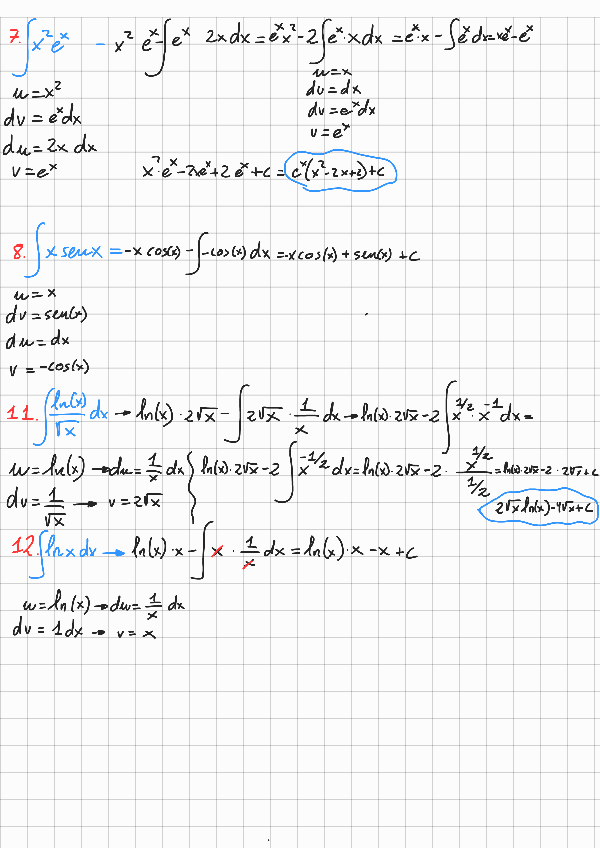 7. ∫x²eˣ - x² eˣ - ∫eˣ 2x dx = eˣx² - 2∫eˣ·x dx = eˣ·x - ∫eˣdx = xeˣ - eˣ
u = x²
dv = eˣdx
du = 2x dx
v = eˣ
u = x
du = dx
dv = eˣdx
v = eˣ
x²·eˣ - 2xeˣ + 2eˣ + c = eˣ(x² - 2x + 2) + c
8. ∫x senx = -x cos(x) - ∫-cos(x) dx = -x cos(x) + sen(x) + c
u = x
dv = sen(x)
du = dx
v = -cos(x)
11. ∫ln(x)/√x dx → ln(x)·2√x - ∫2√x · 1/x dx → ln(x)·2√x - 2∫x^1/2 · x^-1 dx =
u = ln(x) → du = 1/x dx
dv = 1/√x → v = 2√x
ln(x)·2√x - 2∫x^-1/2 dx = ln(x)·2√x - 2 · x^1/2 / 1/2 = ln(x)·2√x - 2·2√x + c
2√x ln(x) - 4√x + c
12. ∫lnx dx → ln(x)·x - ∫x · 1/x dx = ln(x)·x - x + c
u = ln(x) → du = 1/x dx
dv = 1dx → v = x